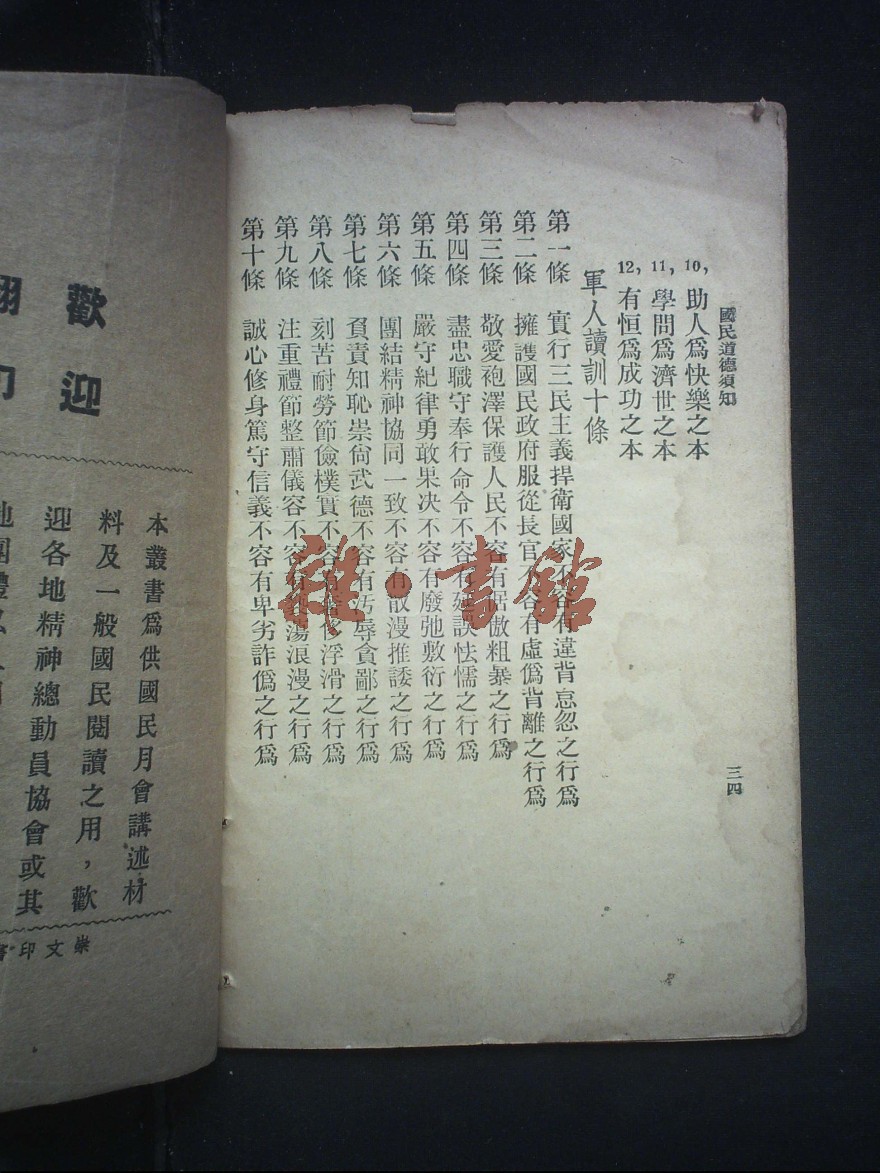 國民道德須知
三四
10，助人爲快樂之本
11，學問爲濟世之本
12，有恒爲成功之本
軍人讀訓十條
第一條 實行三民主義捍衛國家不容有違背怠忽之行爲
第二條 擁護國民政府服從長官不容有虛僞背離之行爲
第三條 敬愛袍澤保護人民不容有倨傲粗暴之行爲
第四條 盡忠職守奉行命令不容有延誤怯懦之行爲
第五條 嚴守紀律勇敢果决不容有廢弛敷衍之行爲
第六條 團結精神協同一致不容有散漫推諉之行爲
第七條 負責知恥崇尙武德不容有汚辱貪鄙之行爲
第八條 刻苦耐勞節儉樸實不容有奢侈浮滑之行爲
第九條 注重禮節整肅儀容不容有蕩浪漫之行爲
第十條 誠心修身篤守信義不容有卑劣詐僞之行爲
雜·書館
歡迎
翻印
本叢書爲供國民月會講述材
料及一般國民閱讀之用，歡
迎各地精神總動員協會或其
崇文印書